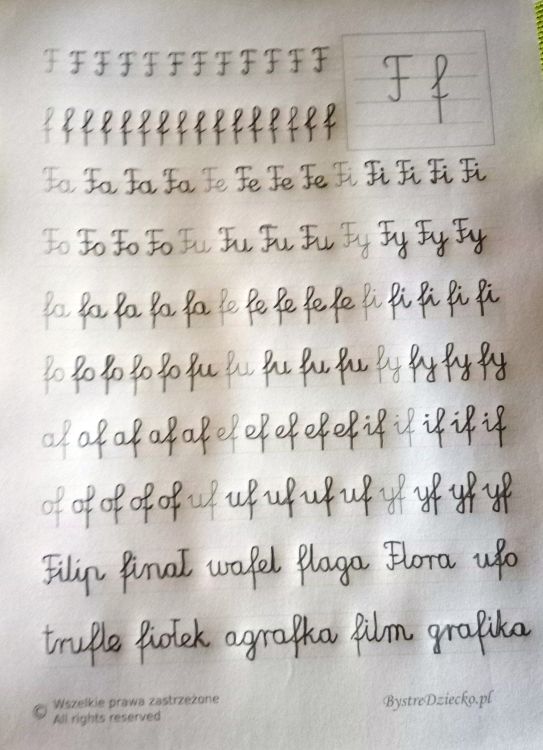 F F F F F F F F F F F F
F f
f f f f f f f f f f f f f f f f
Fa Fa Fa Fa Fe Fe Fe Fe Fi Fi Fi Fi Fi
Fo Fo Fo Fo Fu Fu Fu Fu Fy Fy Fy Fy
fa fa fa fa fa fe fe fe fe fe fi fi fi fi fi
fo fo fo fo fo fu fu fu fu fu fy fy fy fy
af af af af af ef ef ef ef ef if if if if if
of of of of of uf uf uf uf uf yf yf yf yf
Filip finał wafel flaga Flora ufo
trufle fiołek agrafka film grafika
© Wszelkie prawa zastrzeżone
All rights reserved
BystreDziecko.pl